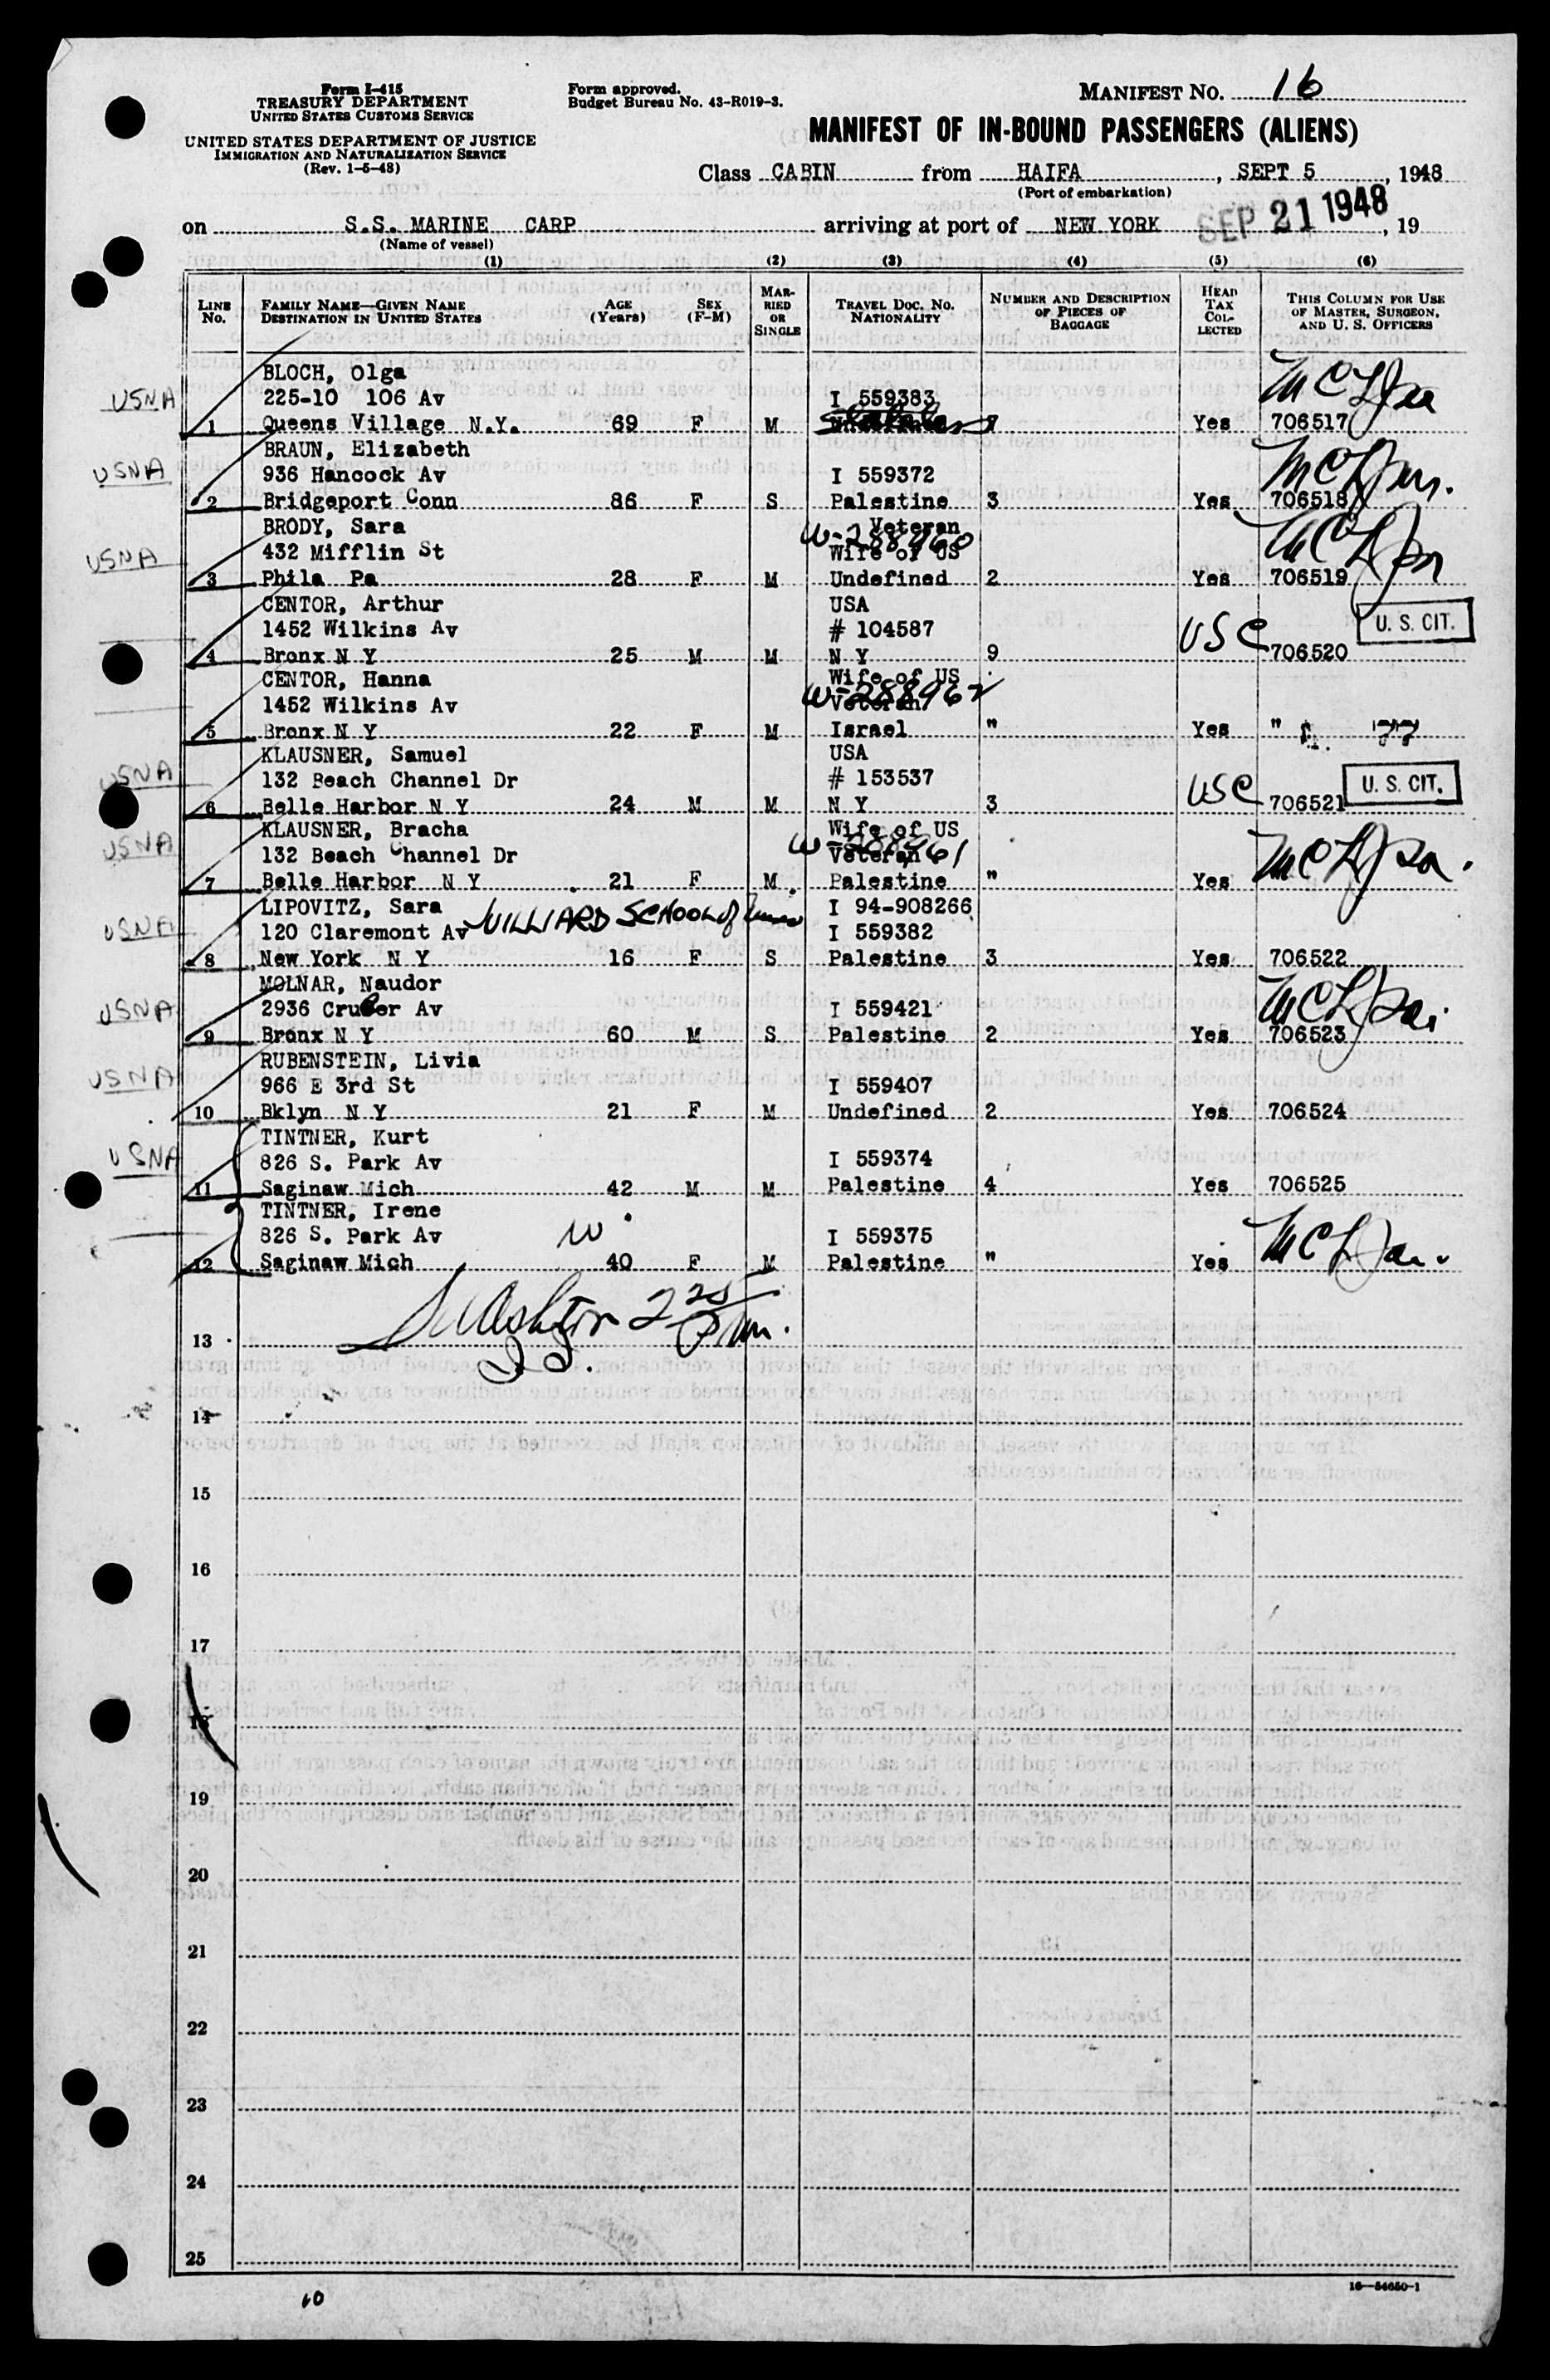 Form I-415
TREASURY DEPARTMENT
UNITED STATES CUSTOMS SERVICE
UNITED STATES DEPARTMENT OF JUSTICE
IMMIGRATION AND NATURALIZATION SERVICE
(Rev. 1-5-48)
Form approved.
Budget Bureau No. 43-R019-3.
MANIFEST NO. 16
MANIFEST OF IN-BOUND PASSENGERS (ALIENS)
Class CABIN from HAIFA, SEPT 5, 1948
(Port of embarkation)
on S.S. MARINE CARP arriving at port of NEW YORK SEP 21 1948, 19
(Name of vessel)
(1) (2) (3) (4) (5) (6)
LINE No. FAMILY NAME—GIVEN NAME DESTINATION IN UNITED STATES AGE (Years) SEX (F-M) MARRIED OR SINGLE TRAVEL DOC. NO. NATIONALITY NUMBER AND DESCRIPTION OF PIECES OF BAGGAGE HEAD TAX COLLECTED THIS COLUMN FOR USE OF MASTER, SURGEON, AND U. S. OFFICERS
BLOCH, Olga
USNA 225-10 106 Av I 559383
1 Queens Village N.Y. 69 F M 7 Yes 706517
BRAUN, Elizabeth
USNA 936 Hancock Av I 559372
2 Bridgeport Conn 86 F S Palestine 3 Yes 706518
BRODY, Sara Veteran W-288960
USNA 432 Mifflin St Wife of US
3 Phila Pa 28 F M Undefined 2 Yes 706519
CENTOR, Arthur USA
1452 Wilkins Av # 104587 USC U. S. CIT.
4 Bronx N Y 25 M M N Y 9 706520
CENTOR, Hanna Wife of US W-288962
1452 Wilkins Av Veteran
5 Bronx N Y 22 F M Israel " Yes "
KLAUSNER, Samuel USA
USNA 132 Beach Channel Dr # 153537 USC U. S. CIT.
6 Belle Harbor N Y 24 M M N Y 3 706521
KLAUSNER, Bracha Wife of US
USNA 132 Beach Channel Dr Veteran W-288961
7 Belle Harbor N Y 21 F M Palestine " Yes
LIPOVITZ, Sara JUILLIARD SCHOOL of I 94-908266
USNA 120 Claremont Av I 559382
8 New York N Y 16 F S Palestine 3 Yes 706522
MOLNAR, Naudor
USNA 2936 Cruger Av I 559421
9 Bronx N Y 60 M S Palestine 2 Yes 706523
RUBENSTEIN, Livia
USNA 966 E 3rd St I 559407
10 Bklyn N Y 21 F M Undefined 2 Yes 706524
TINTNER, Kurt
USNA 826 S. Park Av I 559374
11 Saginaw Mich 42 M M Palestine 4 Yes 706525
TINTNER, Irene
826 S. Park Av W I 559375
12 Saginaw Mich 40 F M Palestine " Yes
13
14
15
16
17
18
19
20
21
22
23
24
25
16—54650-1
10